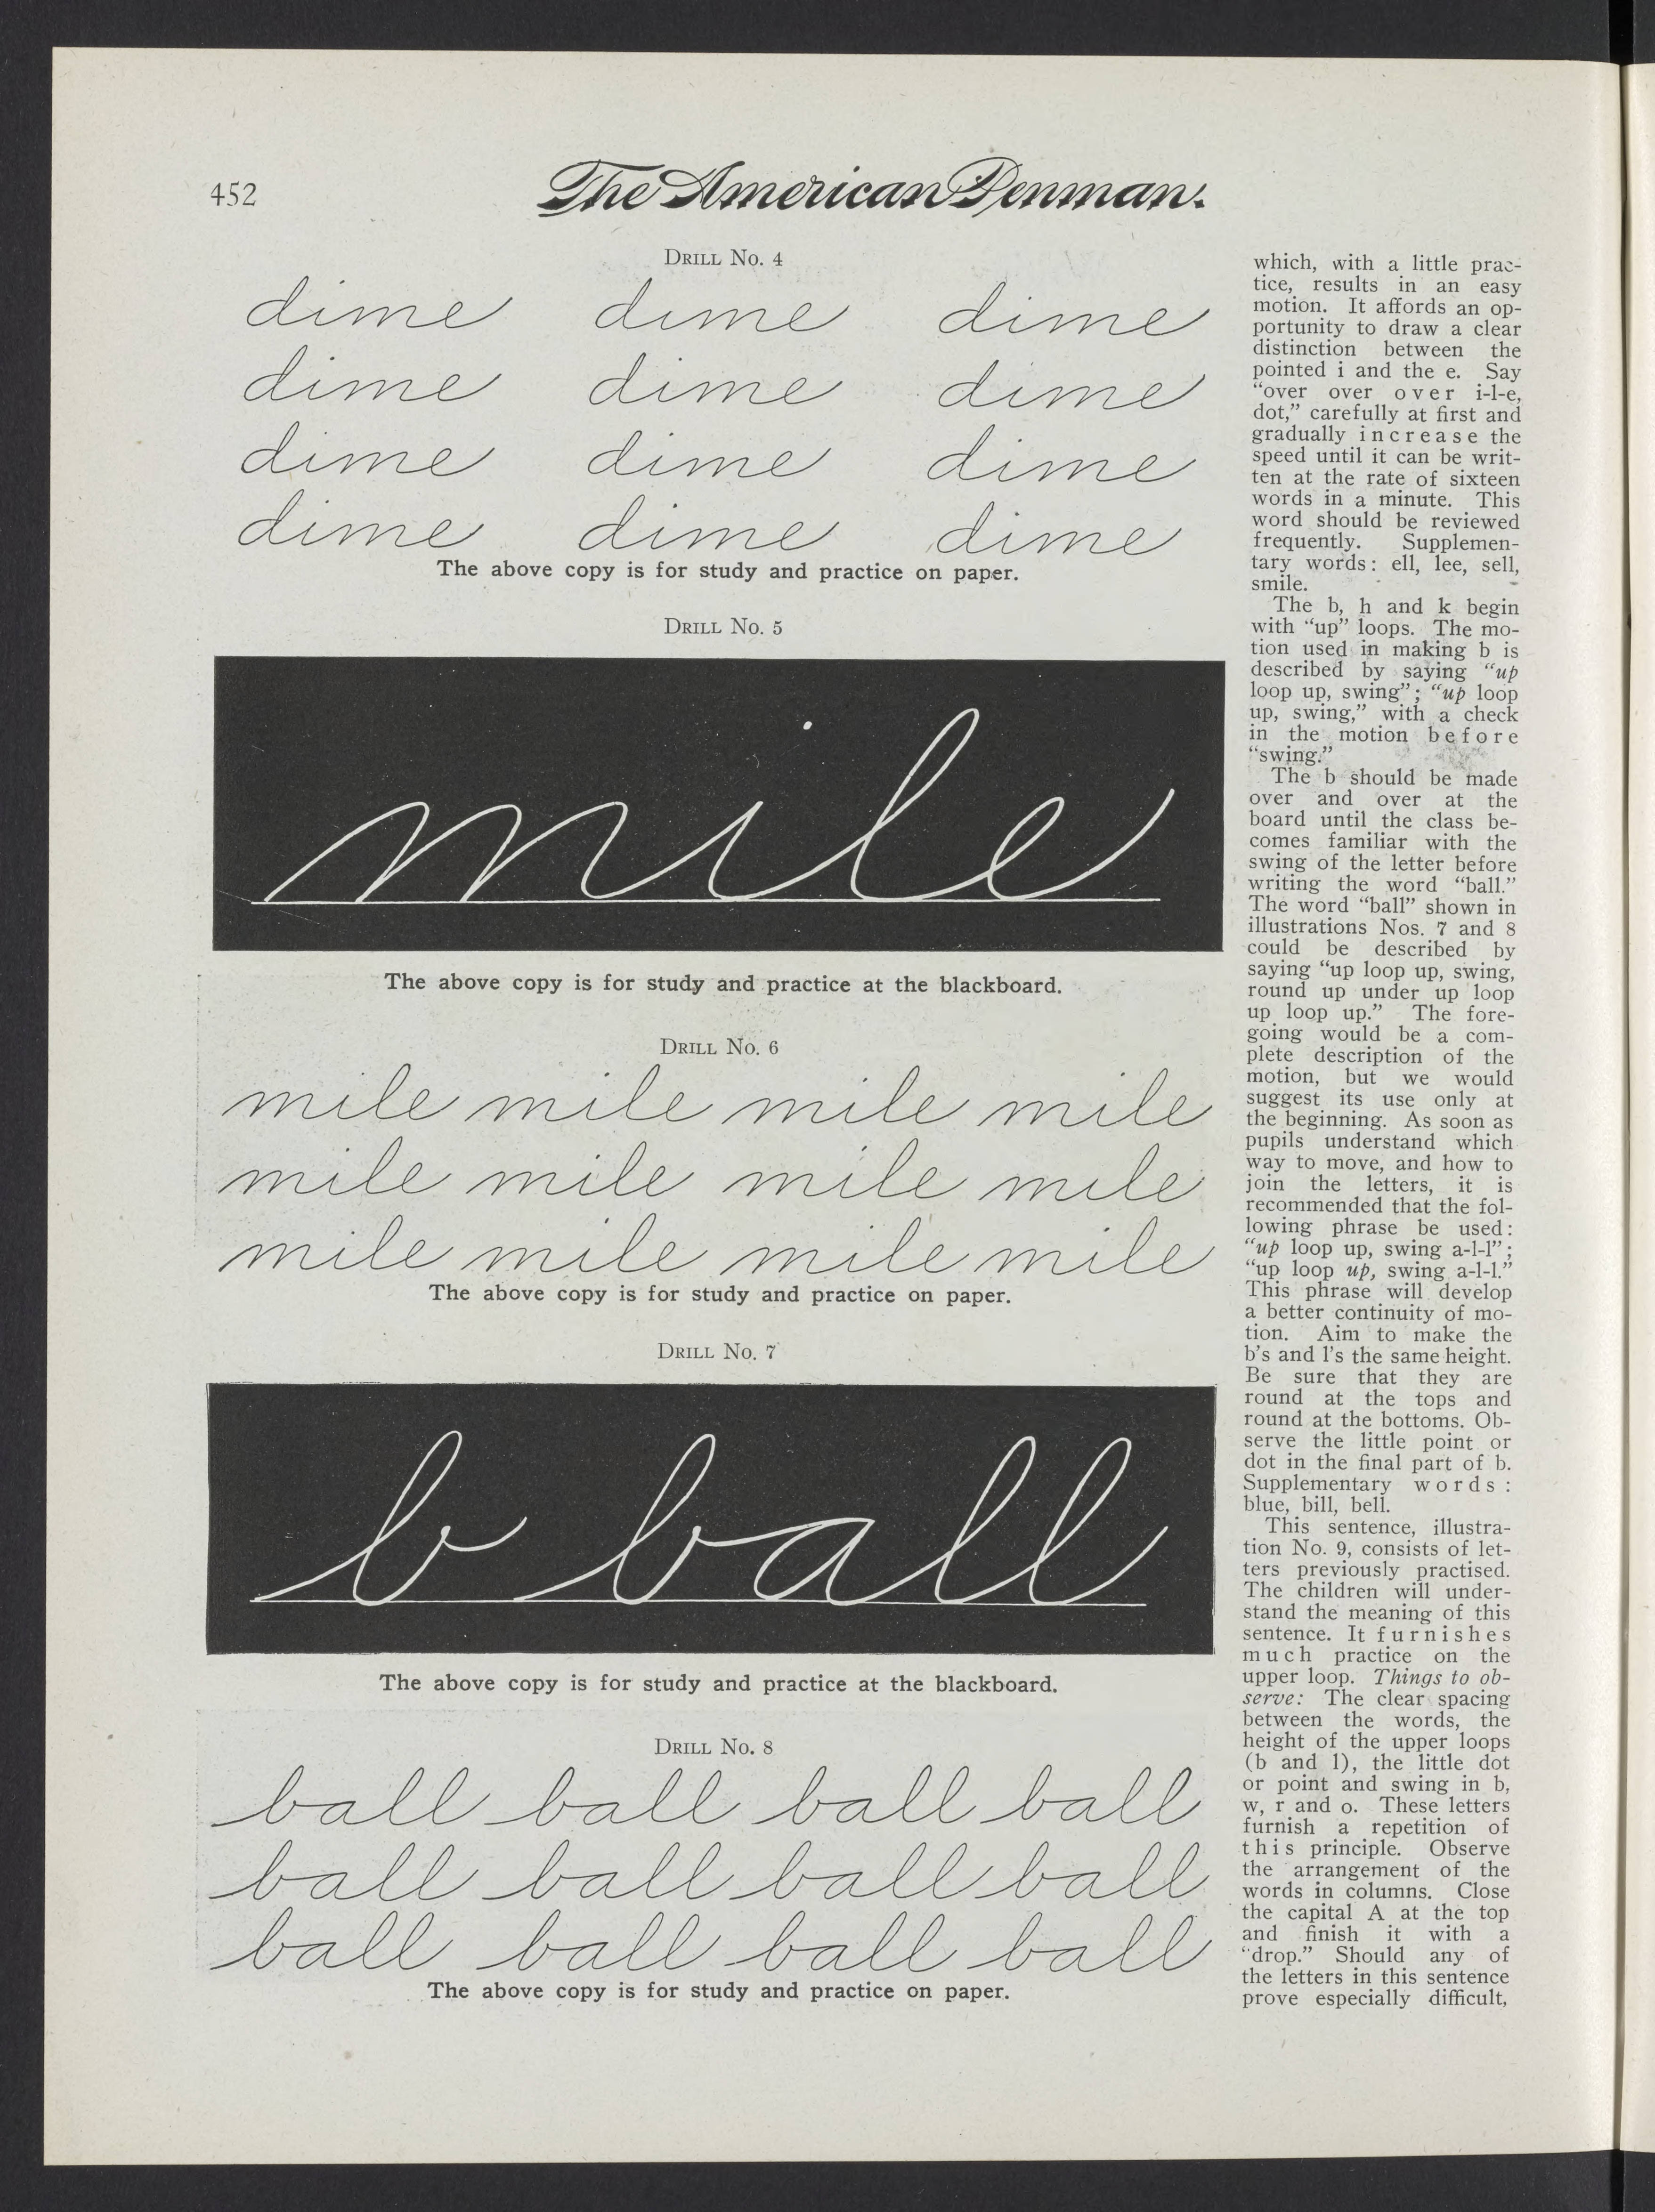 452
The American Penman.
DRILL NO. 4
dime dime dime
dime dime dime
dime dime dime
dime dime dime
The above copy is for study and practice on paper.
DRILL NO. 5
mile
The above copy is for study and practice at the blackboard.
DRILL NO. 6
mile mile mile mile
mile mile mile mile
mile mile mile mile
The above copy is for study and practice on paper.
DRILL NO. 7
b ball
The above copy is for study and practice at the blackboard.
DRILL NO. 8
ball ball ball ball
ball ball ball ball
ball ball ball ball
The above copy is for study and practice on paper.
which, with a little prac-
tice, results in an easy
motion. It affords an op-
portunity to draw a clear
distinction between the
pointed i and the e. Say
“over over over i-l-e,
dot,” carefully at first and
gradually increase the
speed until it can be writ-
ten at the rate of sixteen
words in a minute. This
word should be reviewed
frequently. Supplemen-
tary words: ell, lee, sell,
smile.
The b, h and k begin
with “up” loops. The mo-
tion used in making b is
described by saying “up
loop up, swing”; “up loop
up, swing,” with a check
in the motion before
“swing.”
The b should be made
over and over at the
board until the class be-
comes familiar with the
swing of the letter before
writing the word “ball.”
The word “ball” shown in
illustrations Nos. 7 and 8
could be described by
saying “up loop up, swing,
round up under up loop
up loop up.” The fore-
going would be a com-
plete description of the
motion, but we would
suggest its use only at
the beginning. As soon as
pupils understand which
way to move, and how to
join the letters, it is
recommended that the fol-
lowing phrase be used:
“up loop up, swing a-l-l”;
“up loop up, swing a-l-l.”
This phrase will develop
a better continuity of mo-
tion. Aim to make the
b's and l's the same height.
Be sure that they are
round at the tops and
round at the bottoms. Ob-
serve the little point or
dot in the final part of b.
Supplementary words:
blue, bill, bell.
This sentence, illustra-
tion No. 9, consists of let-
ters previously practised.
The children will under-
stand the meaning of this
sentence. It furnishes
much practice on the
upper loop. Things to ob-
serve: The clear spacing
between the words, the
height of the upper loops
(b and l), the little dot
or point and swing in b,
w, r and o. These letters
furnish a repetition of
this principle. Observe
the arrangement of the
words in columns. Close
the capital A at the top
and finish it with a
“drop.” Should any of
the letters in this sentence
prove especially difficult,